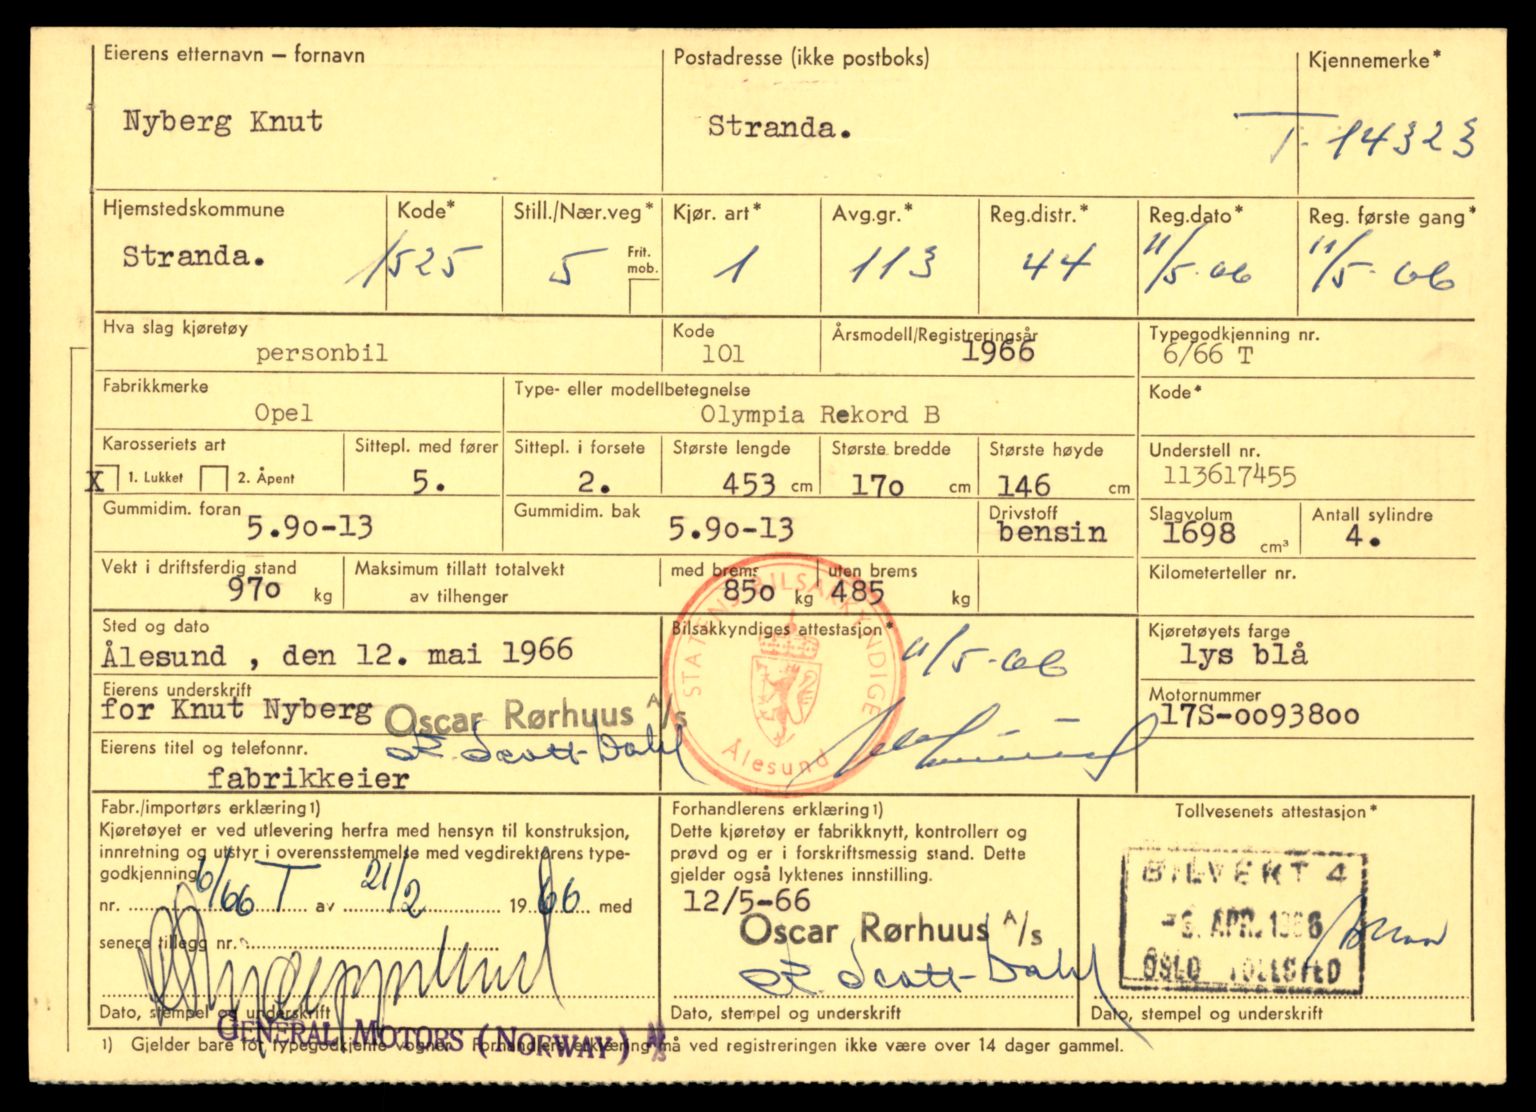 Eierens etternavn — fornavn
Postadresse (ikke postboks)
Kjennemerke*
Nyberg Knut
Stranda.
T- 14323
Hjemstedskommune
Kode*
Still./Nær.veg*
Kjør. art*
Avg.gr.*
Reg.distr.*
Reg.dato*
Reg. første gang*
Stranda.
1525
5
Frit. mob.
1
113
44
11/5-66
11/5-66
Hva slag kjøretøy
Kode
Årsmodell/Registreringsår
Typegodkjenning nr.
personbil
101
1966
6/66 T
Fabrikkmerke
Type- eller modellbetegnelse
Kode*
Opel
Olympia Rekord B
Karosseriets art
Sittepl. med fører
Sittepl. i forsete
Største lengde
Største bredde
Største høyde
Understell nr.
X 1. Lukket 2. Åpent
5.
2.
453 cm
170 cm
146 cm
113617455
Gummidim. foran
Gummidim. bak
Drivstoff
Slagvolum
Antall sylindre
5.90-13
5.90-13
bensin
1698 cm³
4.
Vekt i driftsferdig stand
Maksimum tillatt totalvekt
av tilhenger
med brems
uten brems
Kilometerteller nr.
970 kg
850 kg
485 kg
Sted og dato
Bilsakkyndiges attestasjon*
Kjøretøyets farge
Ålesund , den 12. mai 1966
11/5-66
lys blå
STATENS BILSAKKYNDIGE
Ålesund
Eierens underskrift
Motornummer
for Knut Nyberg
Oscar Rørhuus A/s
17S-0093800
Eierens titel og telefonnr.
R. Scott-Dahl
fabrikkeier
Fabr./importørs erklæring1)
Forhandlerens erklæring1)
Tollvesenets attestasjon*
Kjøretøyet er ved utlevering herfra med hensyn til konstruksjon,
innretning og utstyr i overensstemmelse med vegdirektørens type-
godkjenning
nr. 6/66 T av 21/2 1966 med
senere tillegg nr.
Dette kjøretøy er fabrikknytt, kontrollert og
prøvd og er i forskriftsmessig stand. Dette
gjelder også lyktenes innstilling.
12/5-66
Oscar Rørhuus A/s
R. Scott-Dahl
BILVEKT 4
APR. 1966
OSLO TOLLSTED
Dato, stempel og underskrift
Dato, stempel og underskrift
Dato, stempel og underskrift
GENERAL MOTORS (NORWAY) A/S
1) Gjelder bare for typegodkjente vogner. Forhandlers erklæring må ved registreringen ikke være over 14 dager gammel.